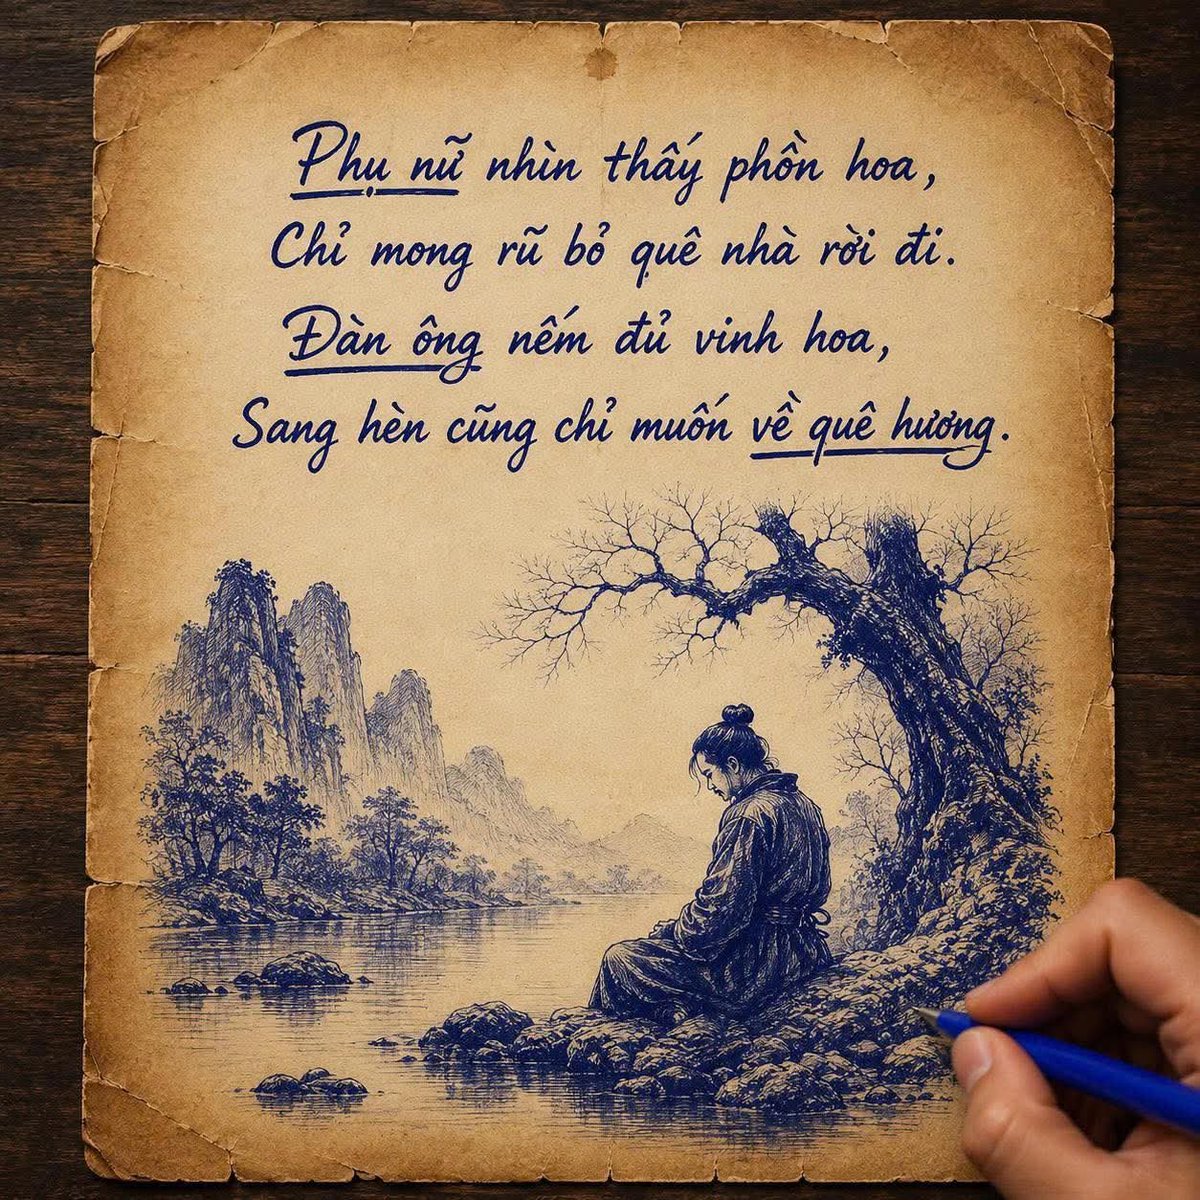 Phụ nữ nhìn thấy phồn hoa,
Chỉ mong rũ bỏ quê nhà rời đi.
Đàn ông nếm đủ vinh hoa,
Sang hèn cũng chỉ muốn về quê hương.